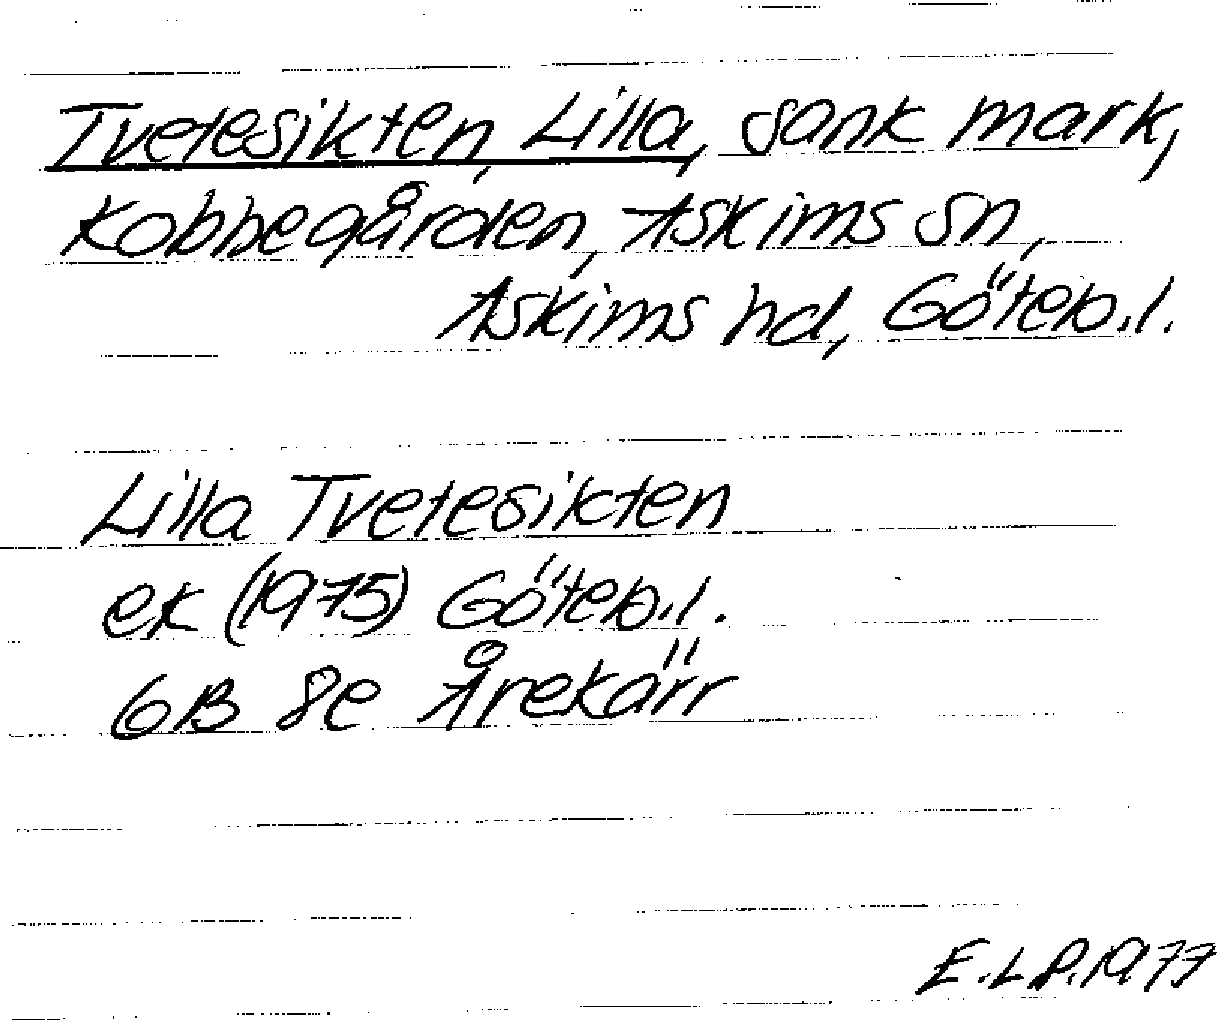 Tvetesikten, Lilla, sank mark,
Kobbegården, Askims sn,
Askims hd, Göteb.l.
Lilla Tvetesikten
ek (1975) Göteb.l.
6B 8e Årekärr
E.L.P.1977